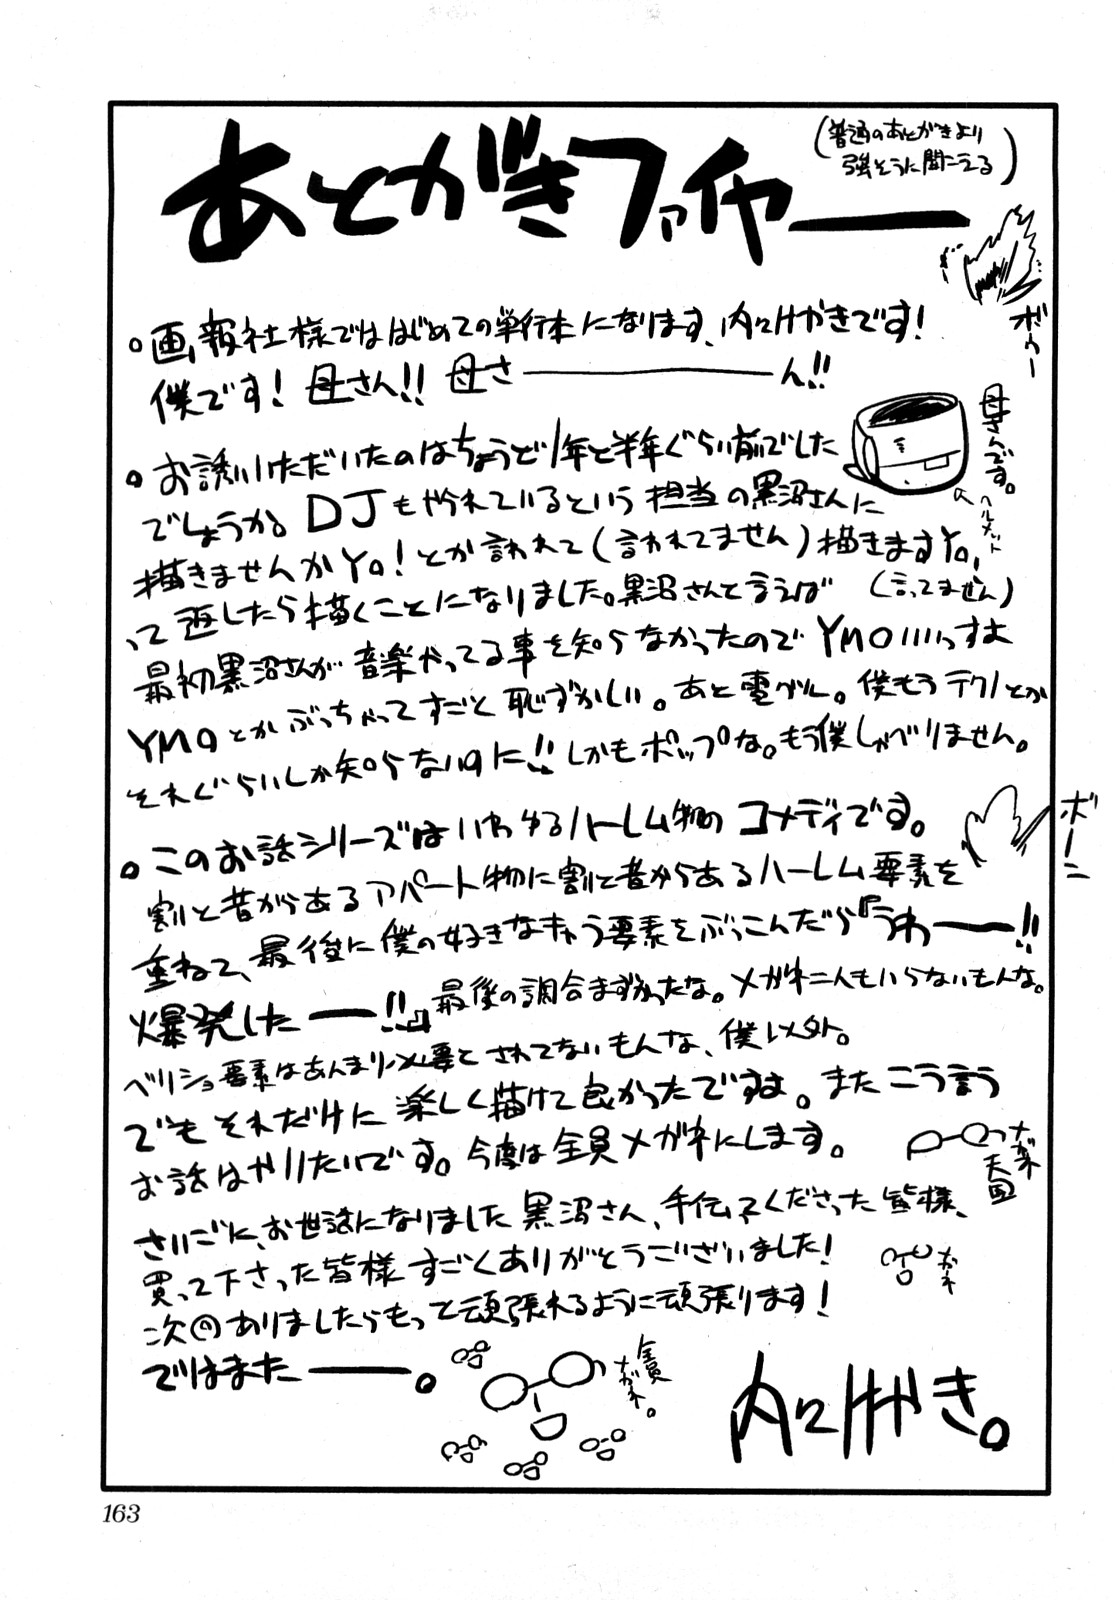 あとがきファイヤー
(普通のあとがきより
強そうに聞こえる)
ボゥー
○画報社様でははじめての単行本になります、内々けやきです!
僕です!母さん!!母さ―――ん!!
母さんです。
ヘルメット
○お誘いいただいたのはちょうど1年と半年ぐらい前でした
でしょうか。DJもやられているという担当の黒沼さんに
描きませんかYo!とか言われて(言われてません)描きますYo,
って返したら描くことになりました。黒沼さんと言えば(言ってません)
最初黒沼さんが音楽やってる事を知らなかったのでYMOいいっすよ
YMOとかぶっちゃってすごく恥ずかしい。あと電グル。僕もうテクノとか
それぐらいしか知らないのに!!しかもポップな。もう僕しゃべりません。
○このお話シリーズはいわゆるハーレム物のコメディです。
ボーン
割と昔からあるアパート物に割と昔からあるハーレム要素を
重ねて、最後に僕の好きなキャラ要素をぶっこんだら『うわーー!!
爆発したーー!!』最後の調合まずかったな。メガネ二人もいらないもんな。
ベリショ要素はあんまり必要とされてないもんな、僕以外。
でもそれだけに楽しく描けて良かったですよ。またこう言う
お話はやりたいです。今度は全員メガネにします。
メガネ天国
さいごに、お世話になりました黒沼さん、手伝ってくださった皆様、
買って下さった皆様すごくありがとうございました!
次回ありましたらもって頑張れるように頑張ります!
ではまたーー。
全員
メガネ。
内々けやき。
163